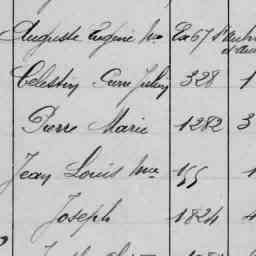 Auguste Eugène Me Ex67
Celestin Pierre Julien 328 1
Pierre Marie 1282 3
Jean Louis Me 155 1
Joseph 1824 4